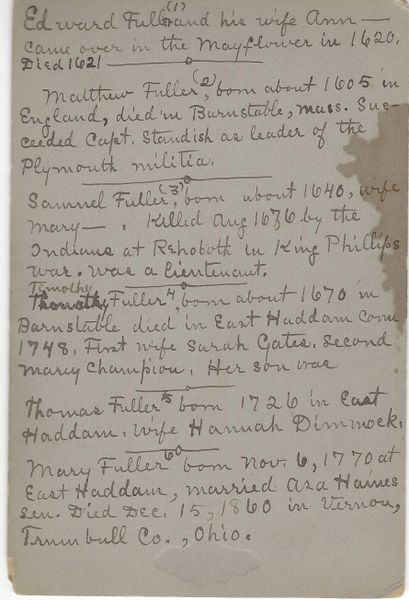 Edward Fuller (1) and his wife Ann —
came over in the Mayflower in 1620.
Died 1621
Matthew Fuller (2), born about 1605 in
England, died in Barnstable, Mass. Suc-
ceeded Capt. Standish as leader of the
Plymouth militia.
Samuel Fuller (3), born about 1640, wife
Mary — . Killed Aug 1676 by the
Indians at Rehoboth in King Phillips
war. Was a lieutenant.
Timothy
Fuller 4, born about 1670 in
Barnstable died in East Haddam Conn
1748. First wife Sarah Gates. Second
Marcy Champion. Her son was
Thomas Fuller 5 born 1726 in East
Haddam. Wife Hannah Dimmock.
Mary Fuller 6 born Nov. 6, 1770 at
East Haddam, married Asa Haines
sen. Died Dec. 15, 1860 in Vernon,
Trumbull Co., Ohio.